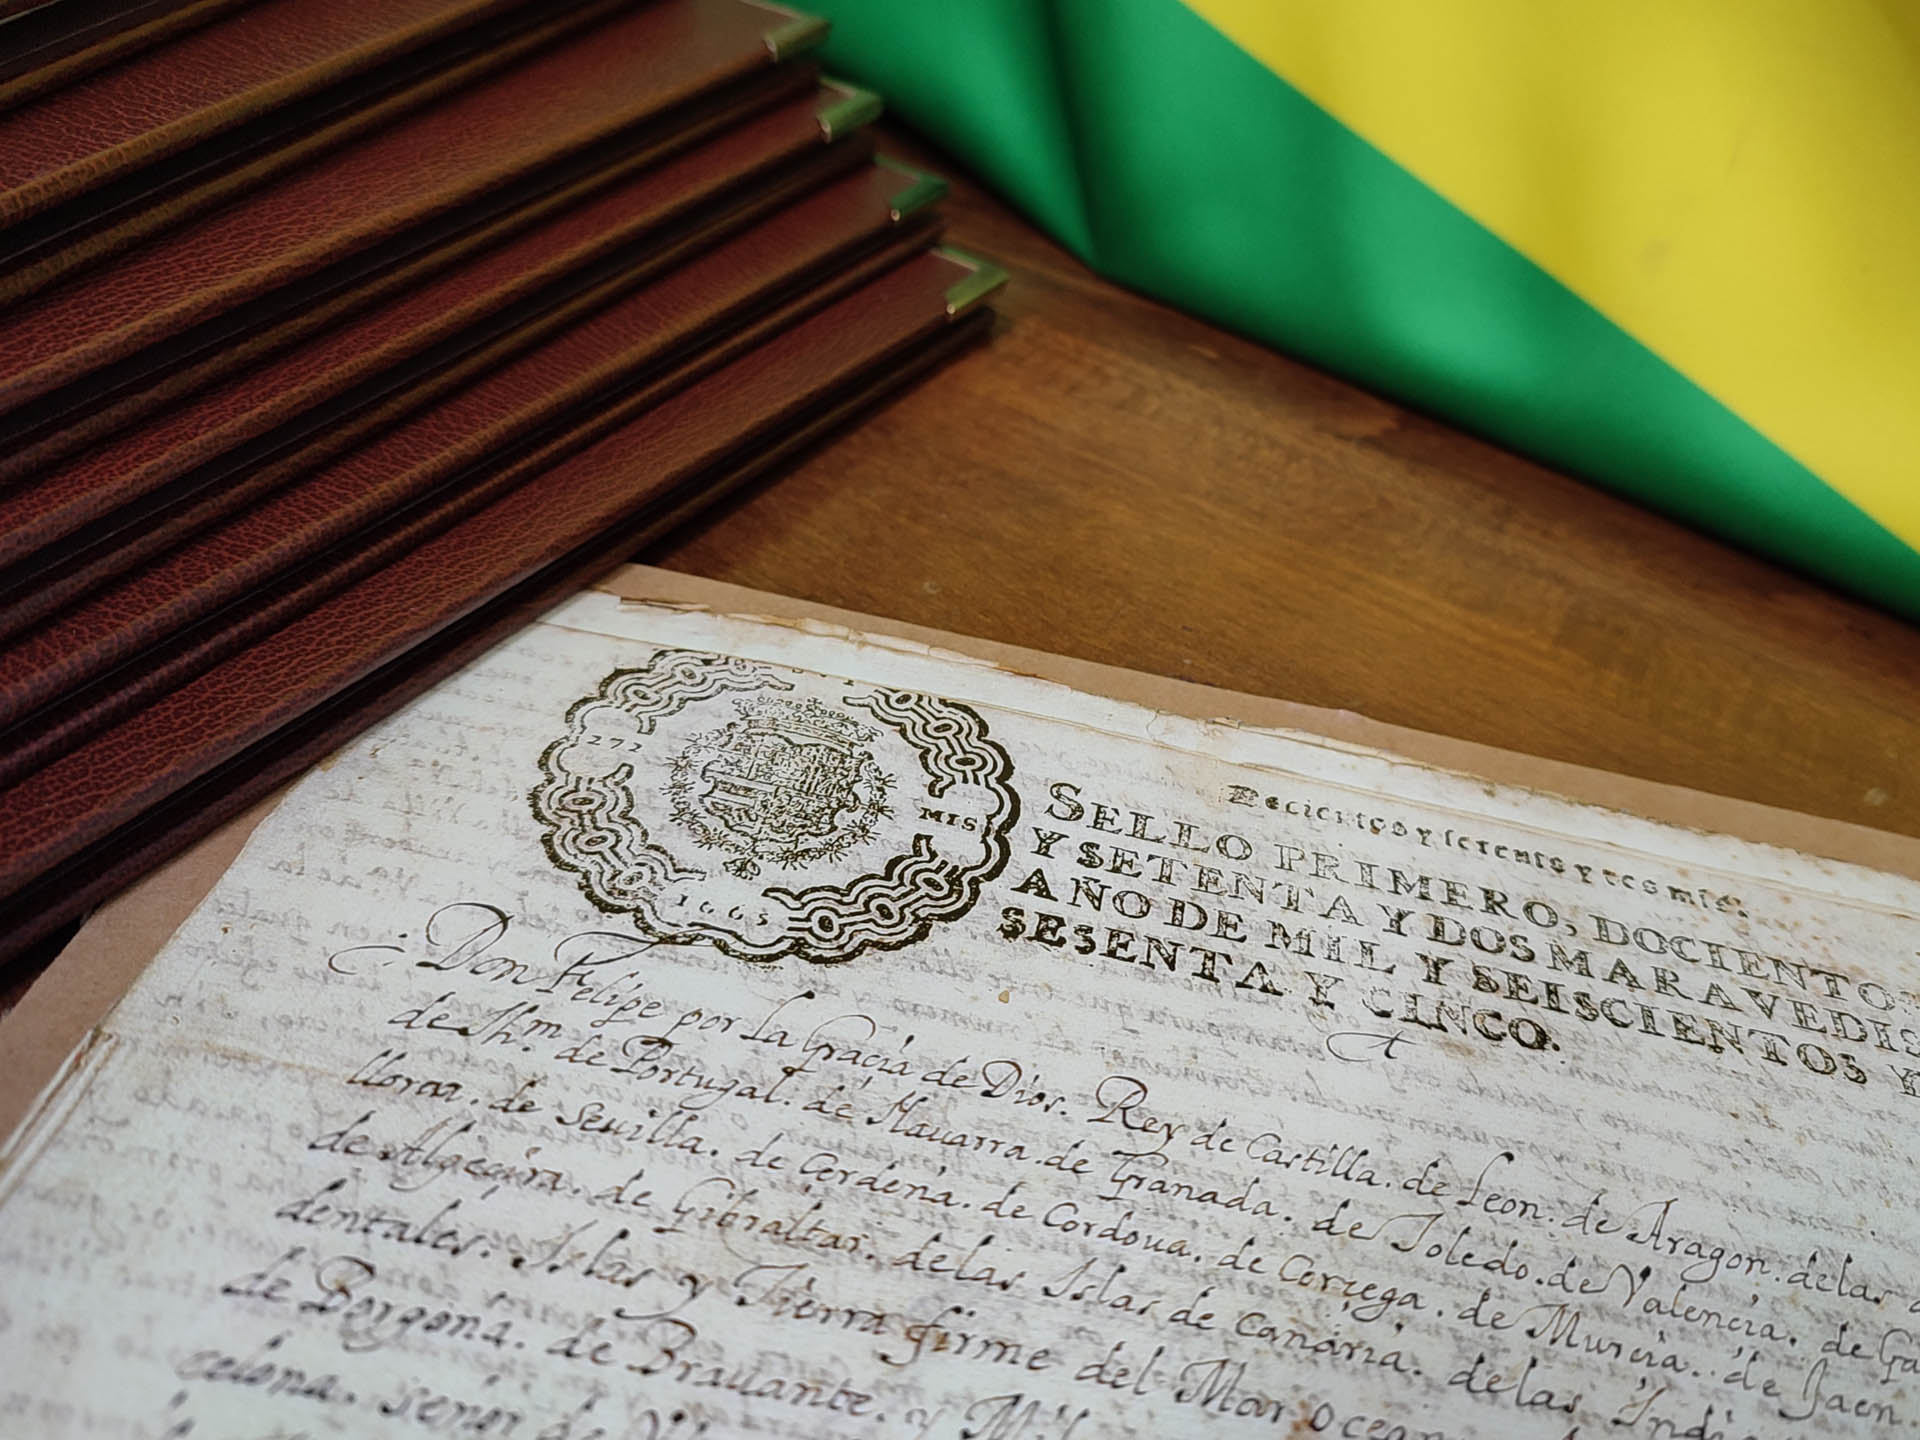 272
MIS
1665
SELLO PRIMERO, DOCIENTOS
Y SETENTA Y DOS MARAVEDIS
AÑO DE MIL Y SEISCIENTOS Y
SESENTA Y CINCO.
Don Felipe por la Gracia de Dios. Rey de Castilla. de Leon. de Aragon. de las
de Portugal. de Nauarra. de Granada. de Toledo. de Valencia. de Ga
de Seuilla. de Cerdeña. de Cordoua. de Corzega. de Murcia. de Jaen.
de Algecira. de Gibraltar. de las Islas de Canaria. de las Indi
dentales. Islas y Tierra firme del Mar Ocean
de Borgoña. de Brauante. y Mil
celona. señor de